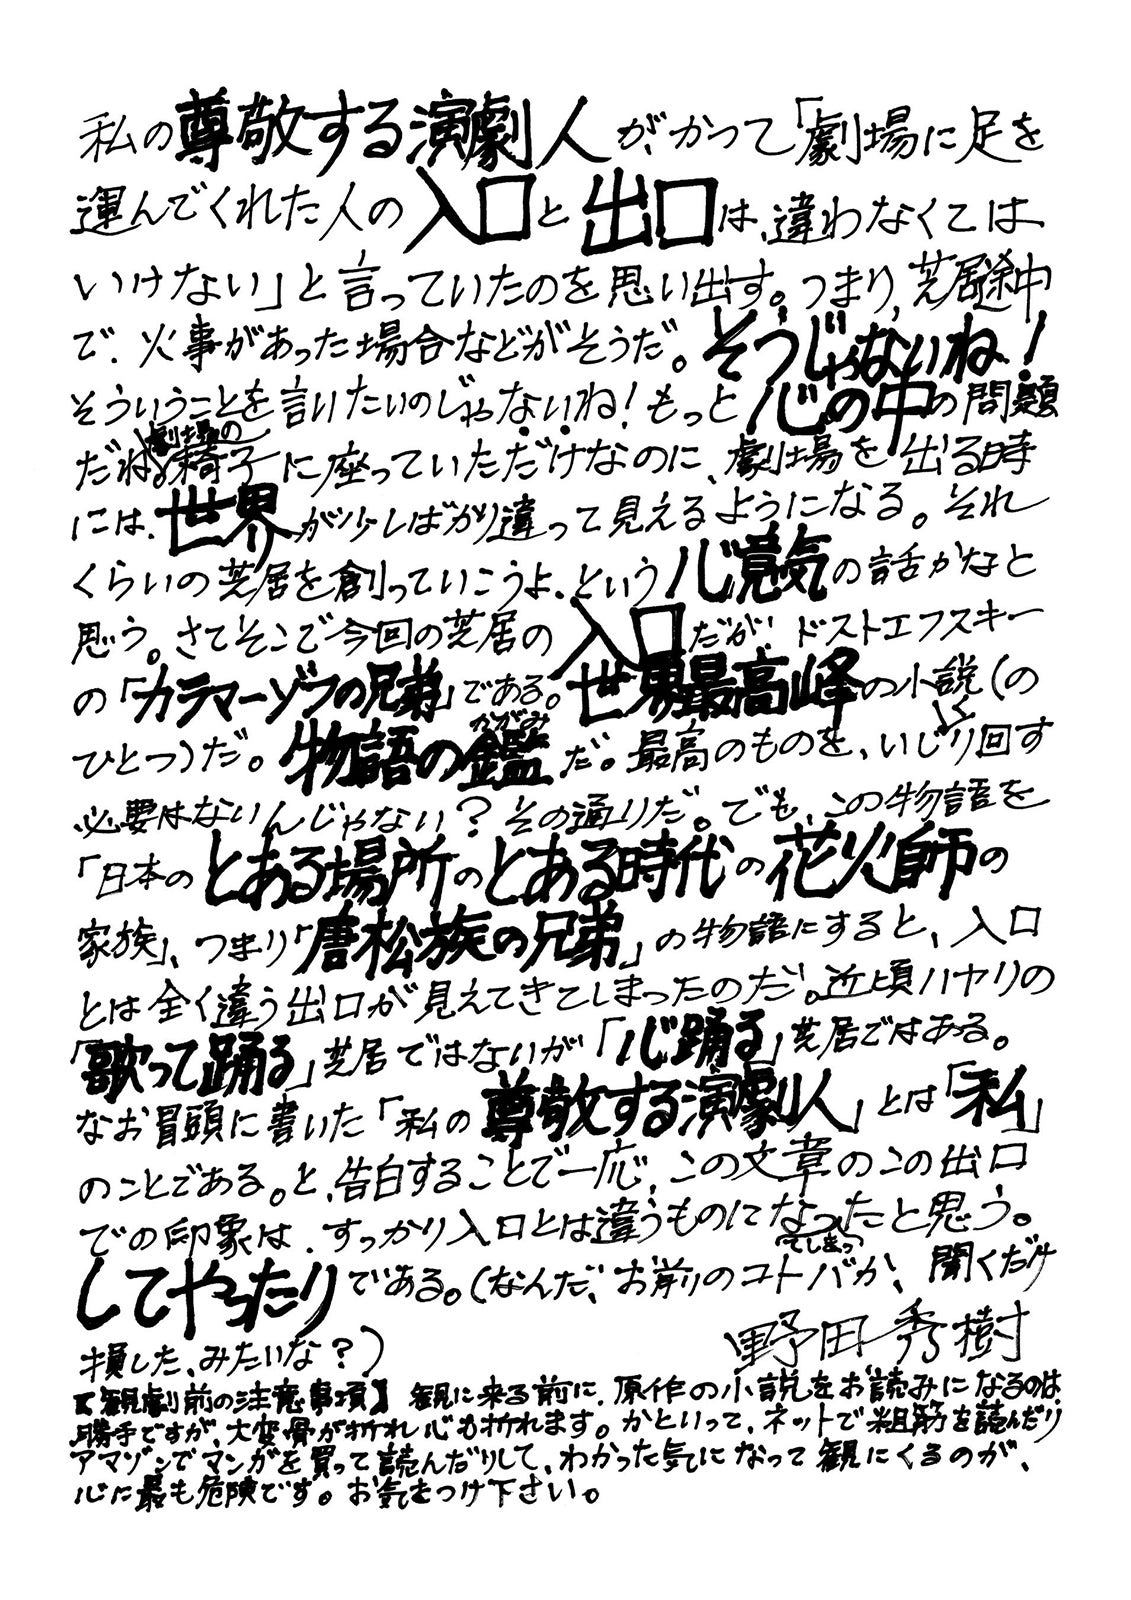 私の尊敬する演劇人が、かつて「劇場に足を
運んでくれた人の入口と出口は、違わなくては
いけない」と言っていたのを思い出す。つまり、芝居途中
で、火事があった場合などがそうだ。そうじゃないね!
そういうことを言いたいのじゃないね!もっと心の中の問題
だね。劇場の椅子に座っていただけなのに、劇場を出る時
には、世界が少しばかり違って見えるようになる。それ
くらいの芝居を創っていこうよ、という心意気の話かなと
思う。さてそこで今回の芝居の入口だが、ドストエフスキー
の「カラマーゾフの兄弟」である。世界最高峰の小説(の
ひとつ)だ。物語の鑑かがみだ。最高のものを、いじくり回す
必要はないんじゃない?その通りだ。でも、この物語を
「日本のとある場所のとある時代の花火師の
家族」、つまり「唐松族の兄弟」の物語にすると、入口
とは全く違う出口が見えてきてしまったのだ。近頃ハヤリの
「歌って踊る」芝居ではないが「心踊る」芝居ではある。
なお冒頭に書いた「私の尊敬する演劇人」とは「私」
のことである。と、告白することで一応、この文章のこの出口
での印象は、すっかり入口とは違うものになってしまったと思う。
してやったりである。(なんだ、お前のコトバか、聞くだけ
損した、みたいな?)
野田秀樹
【観劇前の注意事項】観に来る前に、原作の小説をお読みになるのは、
勝手ですが、大変骨が折れ心も折れます。かといって、ネットで粗筋を読んだり、
アマゾンでマンガを買って読んだりして、わかった気になって観にくるのが、
心に最も危険です。お気をつけ下さい。